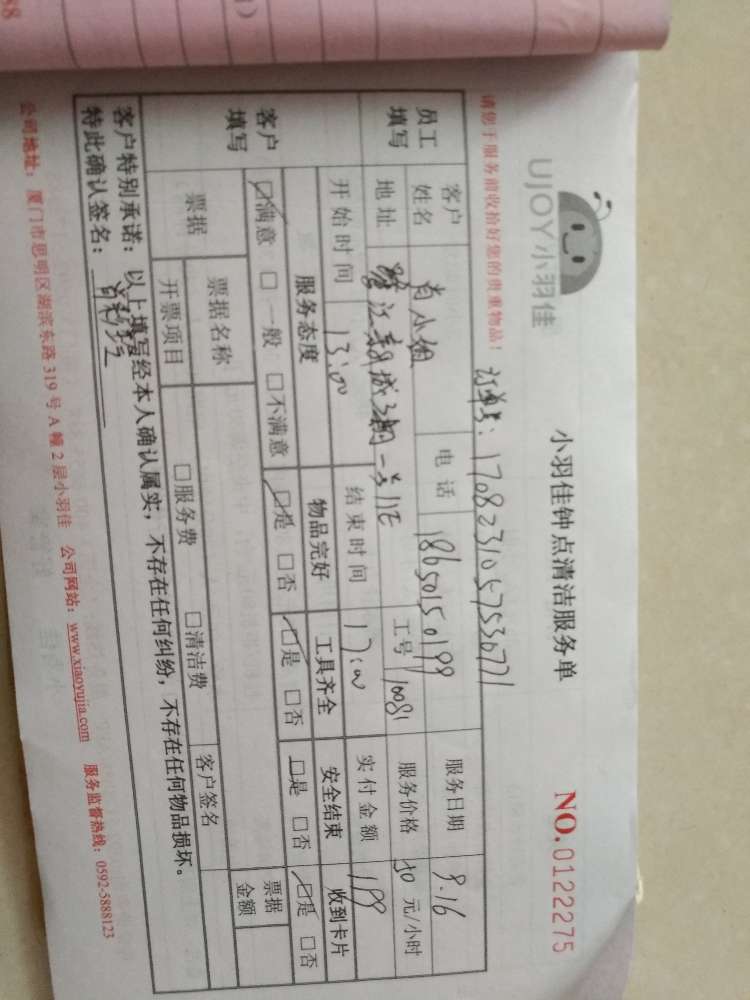 UJOY小羽佳
小羽佳钟点清洁服务单
NO.0122275
请您于服务前收拾好您的贵重物品！
订单号：17082310575530771
员工填写
客户姓名 肖小姐 电话 18650150199 服务日期 9.16
地址 江 城三期一号11E 工号 10081 服务价格 50 元/小时
开始时间 13:00 结束时间 17:00 实付金额 199
客户填写
服务态度 物品完好 工具齐全 安全结束 收到卡片
☑满意 □一般 □不满意 ☑是 □否 ☑是 □否 ☑是 □否 ☑是 □否
票据 票据名称 客户签名 票据金额
开票项目 □服务费 □清洁费
客户特别承诺：以上填写经本人确认属实，不存在任何纠纷，不存在任何物品损坏。
特此确认签名：
公司地址：厦门市思明区湖滨东路 319 号 A 幢 2 层小羽佳 公司网站：www.xiaoyujia.com 服务监督热线：0592-5888123